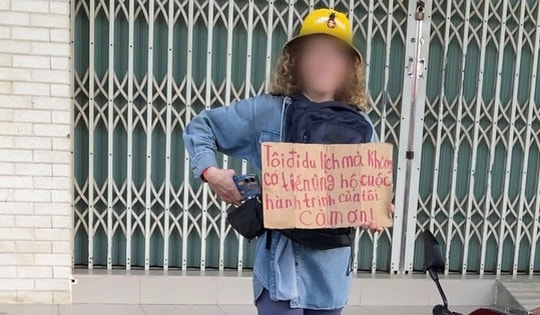 Tôi đi du lịch mà không
có tiền ủng hộ cuộc
hành trình của tôi
Cảm ơn!